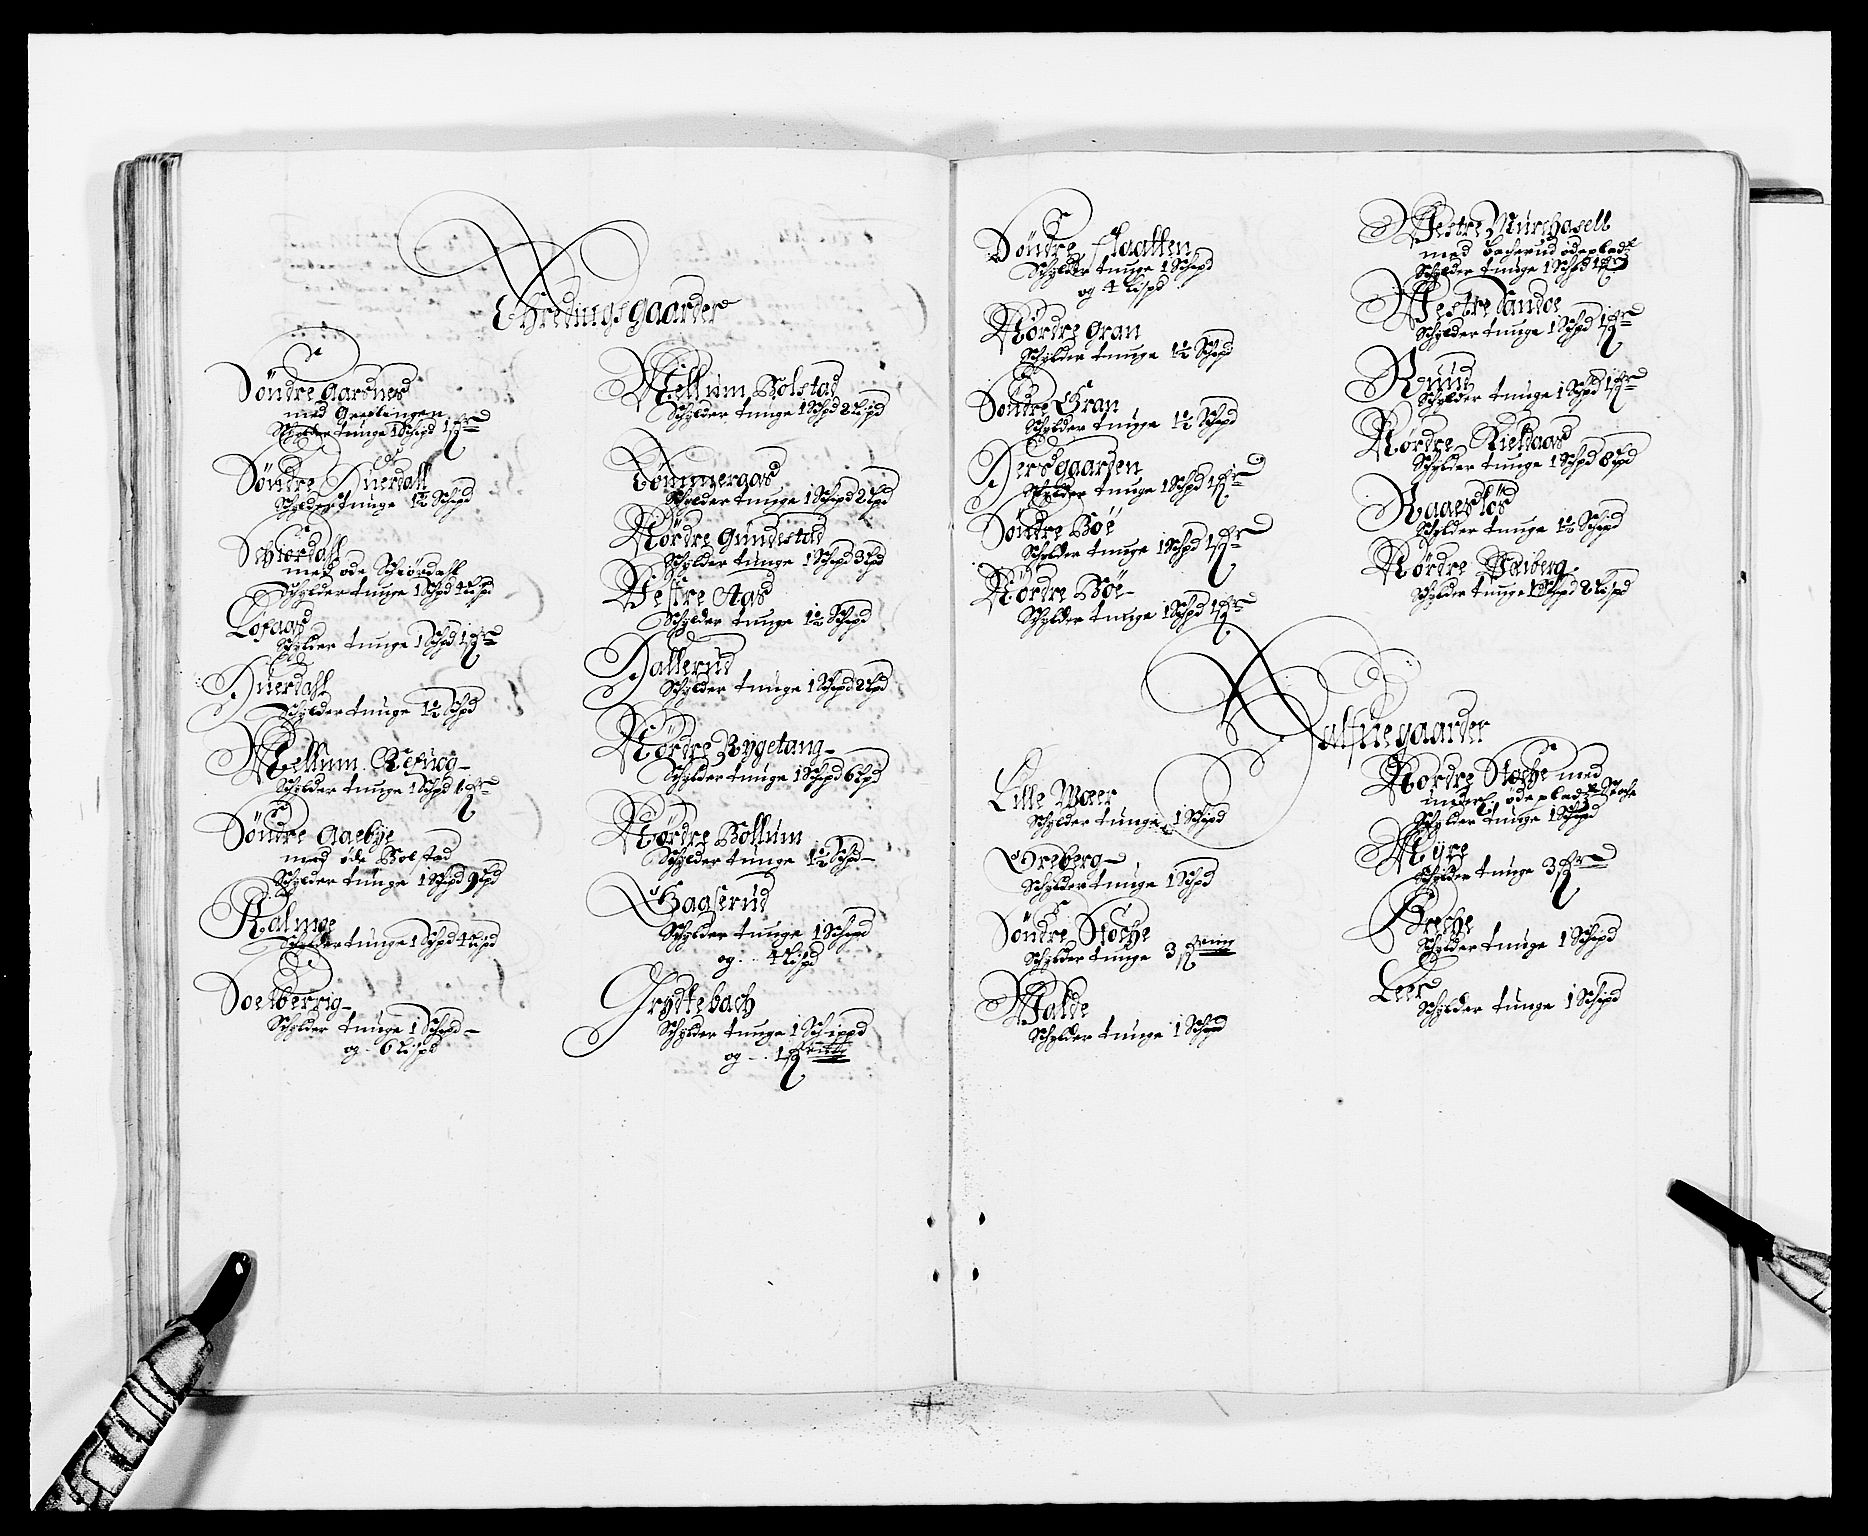 Thredingsgaarder
Søndre Gaardnes
med Greslingen
Schylder tunge 1 Schpd 1 fr
Søndre Huerdall
Schylder tunge 1½ Schpd
Schiørdall
med øde Schiørdahl
Schylder tunge 1 Schpd 4 Lispd
Løfaas
Schylder tunge 1 Schpd 1 fr
Huerdahl
Schylder tunge 1½ Schpd
Mellum Refuog
Schylder tunge 1 Schpd 1 fr
Søndre Gaebye
med øde Bolstad
Schylder tunge 1 Schpd 9 Lpd
Kalnæe
Schylder tunge 1 Schpd 4 Lispd
Soelberrig
Schylder tunge 1 Schpd
og 6 Lispd
Mellum Bolstad
Schylder tunge 1 Schpd 8 Lispd
Tømmeraas
Schylder tunge 1 Schpd 2 Lpd
Nørdre Gundestad
Schylder tunge 1 Schpd 3 Lpd
Vestre Aas
Schylder tunge 1½ Schpd
Hallerud
Schylder tunge 1 Schpd 2 Lpd
Nørdre Rygetang
Schylder tunge 1 Schpd 6 Lpd
Nørdre Bollum
Schylder tunge 1½ Schpd
Haaserud
Schylder tunge 1 Schpd
og 4 Lispd
Grydtebach
Schylder tunge 1 Schippd
og 1 fring
Søndre Slaatten
Schylder tunge 1 Schpd
og 4 Lispd
Nørdre Gran
Schylder tunge 1½ Schpd
Søndre Gran
Schylder tunge 1½ Schpd
Hersgaarden
Schylder tunge 1 Schpd 1 fr
Søndre Bøe
Schylder tunge 1 Schpd 1 fr
Nørdre Bøe
Schylder tunge 1 Schpd 1 fr
Westre Murchasell
med Becherud ødeplads
Schylder tunge 1 Schpd 1 fr
Westre Sandoe
Schylder tunge 1 Schpd 1 fr
Ruud
Schylder tunge 1 Schpd 1 fr
Nørdre Kieldaas
Schylder tunge 1 Schpd 8 Lpd
Raaesløs
Schylder tunge 1½ Schpd
Nørdre Weiberg
Schylder tunge 1 Schpd 2 Lispd
Halfuegaarder
Lille Wæer
Schylder tunge 1 Schpd
Threberg
Schylder tunge 1 Schpd
Søndre Støche
Schylder tunge 3 fring
Walde
Schylder tunge 1 Schpd
Nordre Støche med
underl. ødeplads Støche
Schylder tunge 1 Schpd
Myre
Schylder tunge 3 fr
Breche
Schylder tunge 1 Schpd
Leer
Schylder tunge 1 Schpd